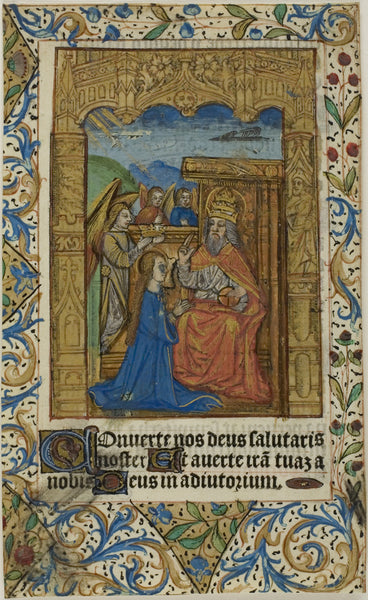 Conuerte nos deus salutaris
noster Et auerte irã tuaz a
nobis Deus in adiutorium.